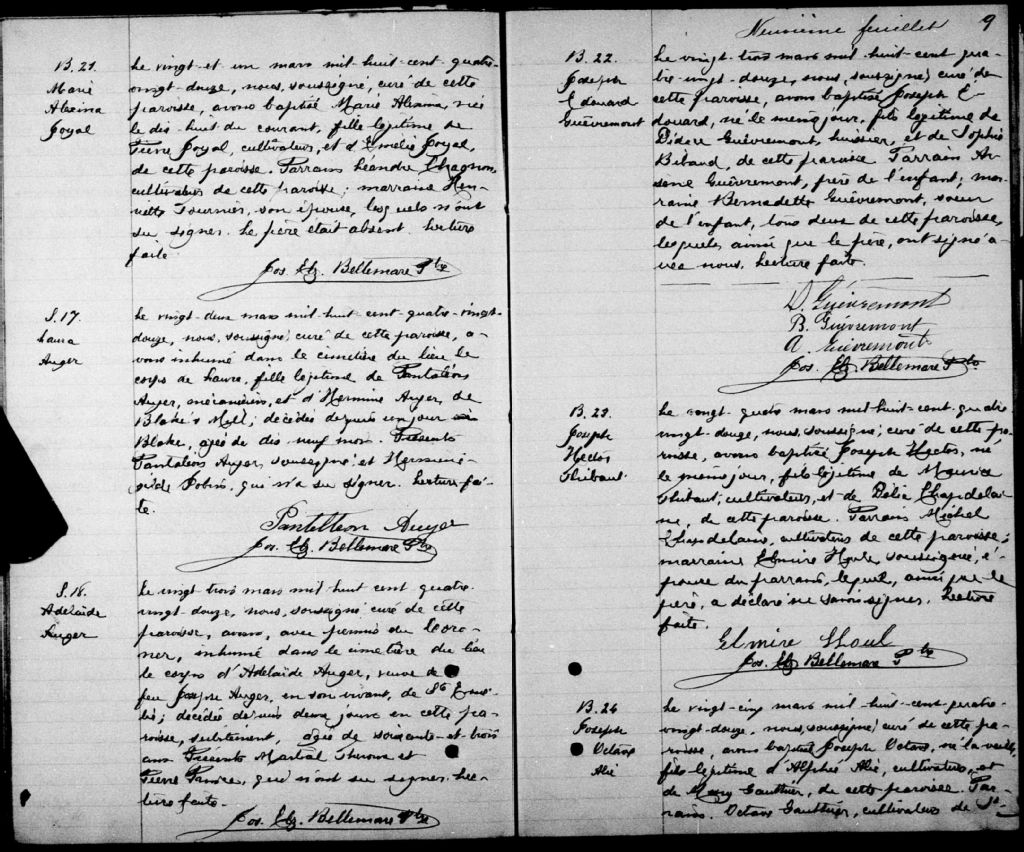 B. 21.
Marie
Alexina
Joyal
Le vingt et un mars mil huit cent quatre-
vingt-douze, nous, soussigné, curé de cette
paroisse, avons baptisé Marie Alexina, née
le dix-huit du courant, fille légitime de
Pierre Joyal, cultivateur, et d'Emélie Joyal,
de cette paroisse. Parrain Léandre Chagnon,
cultivateur de cette paroisse; marraine Hen-
riette Fournier, son épouse, lesquels n'ont
su signer. Le père était absent. Lecture
faite.
Jos. Elz. Bellemare Ptre
S. 17.
Laura
Auger
Le vingt-deux mars mil huit cent quatre-vingt-
douze, nous, soussigné, curé de cette paroisse, a-
vons inhumé dans le cimetière du lieu le
corps de Laura, fille légitime de Pantaléon
Auger, mécanicien, et d'Hermine Auger, de
Blake's Mill; décédée depuis un jour
Blake, agée de dix neuf mois. Présents
Pantaléon Auger, soussigné, et Herméné-
gilde Robin, qui n'a su signer. Lecture fai-
te.
Pantelleon Auger
Jos. Elz. Bellemare Ptre
S. 18.
Adelaïde
Auger
Le vingt trois mars mil huit cent quatre
vingt-douze, nous, soussigné, curé de cette
paroisse, avons, avec permis du Coro-
ner, inhumé dans le cimetière du lieu
le corps d'Adelaïde Auger, veuve de
feu Joseph Auger, en son vivant, de St
décédée depuis deux jours en cette pa-
roisse, subitement, agée de soixante-et-trois
ans Présents Martial Theroux et
Pierre qui n'ont su signer. Lec-
ture faite.
Jos. Elz. Bellemare Ptre
Neuvième feuillet 9
B. 22.
Joseph
Edouard
Guèvremont
Le vingt trois mars mil huit-cent qua-
tre-vingt-douze, nous, soussigné, curé de
cette paroisse, avons baptisé Joseph E-
douard, né le même jour, fils légitime de
Didace Guèvremont, huissier, et de Sophie
Bibaud, de cette paroisse Parrain Ar-
sene Guèvremont, frère de l'enfant; mar-
raine Bernadette Guèvremont, soeur
de l'enfant, tous deux de cette paroisse,
lesquels, ainsi que le père, ont signé a-
vec nous. Lecture faite.
D. Guèvremont
B. Guèvremont
A. Guèvremont
Jos. Elz. Bellemare Ptre
B. 23.
Joseph
Hector
Thibaut
Le vingt-quatre mars mil huit-cent quatre
vingt-douze, nous, soussigné, curé de cette pa-
roisse, avons baptisé Joseph Hector, né
le même jour, fils légitime de Maurice
Thibaut, cultivateur, et de Délia Chapdelai-
ne, de cette paroisse. Parrain Michel
Chapdelaine, cultivateur de cette paroisse;
marraine Elmire Houle, soussignée, é-
pouse du parrain, lequel, ainsi que le
père, a déclaré ne savoir signer. Lecture
faite.
Elmire Houl
Jos. Elz. Bellemare Ptre
B. 24
Joseph
Octave
Alie
Le vingt-cinq mars mil huit-cent-quatre-
vingt-douze, nous, soussigné, curé de cette pa-
roisse, avons baptisé Joseph Octave, né la veille,
fils légitime d'Alphé Alie, cultivateur, et
de Mary Gauthier, de cette paroisse. Par-
rain. Octave Gauthier, cultivateur de St-